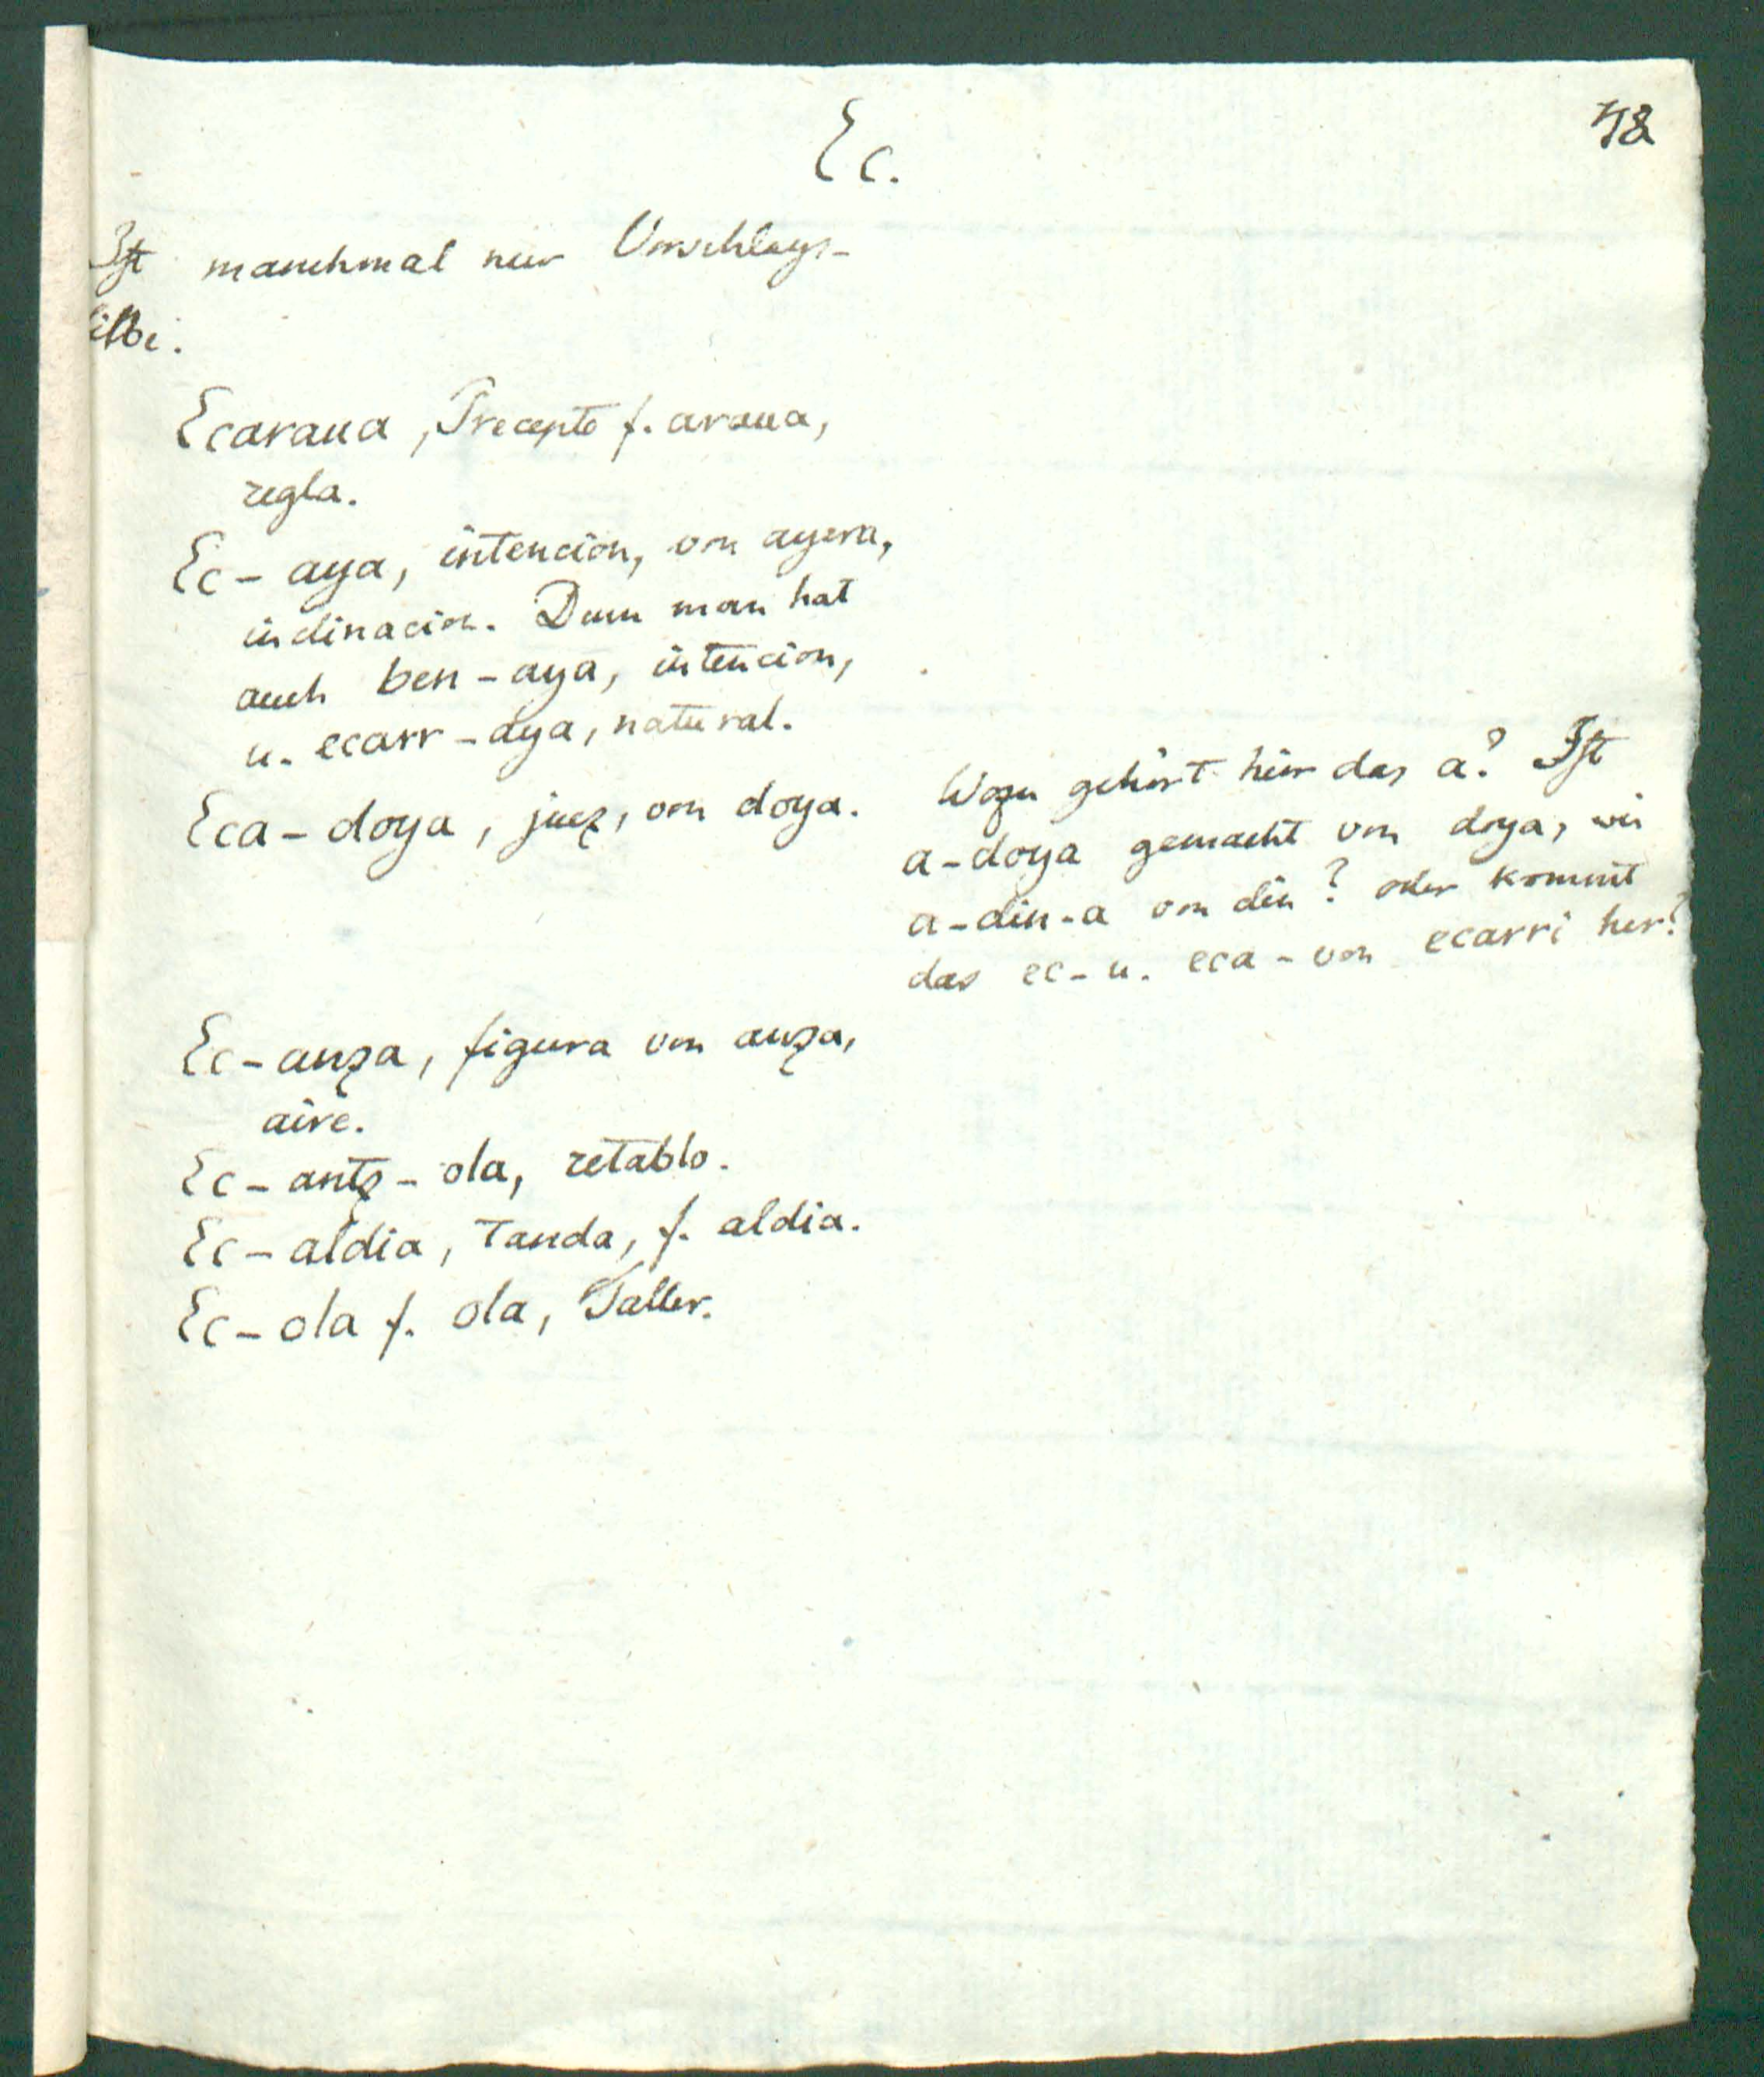 48
Ec.
Ist manchmal nur Vorschlags-
silbe.
Ecaraua, Precepto f. araua,
regla.
Ec-aya, intencion, von ayera,
inclinacion. Denn man hat
auch ben-aya, intencion,
u. ecarr-aya, natural.
Eca-doya, juez, von doya.
Wozu gehört hier das a? Ist
a-doya gemacht von doya, wie
a-din-a von din? oder kommt
das ec- u. eca- von ecarri her?
Ec-anza, figura von anza,
aire.
Ec-antz-ola, retablo.
Ec-aldia, Tanda, f. aldia.
Ec-ola f. ola, Taller.